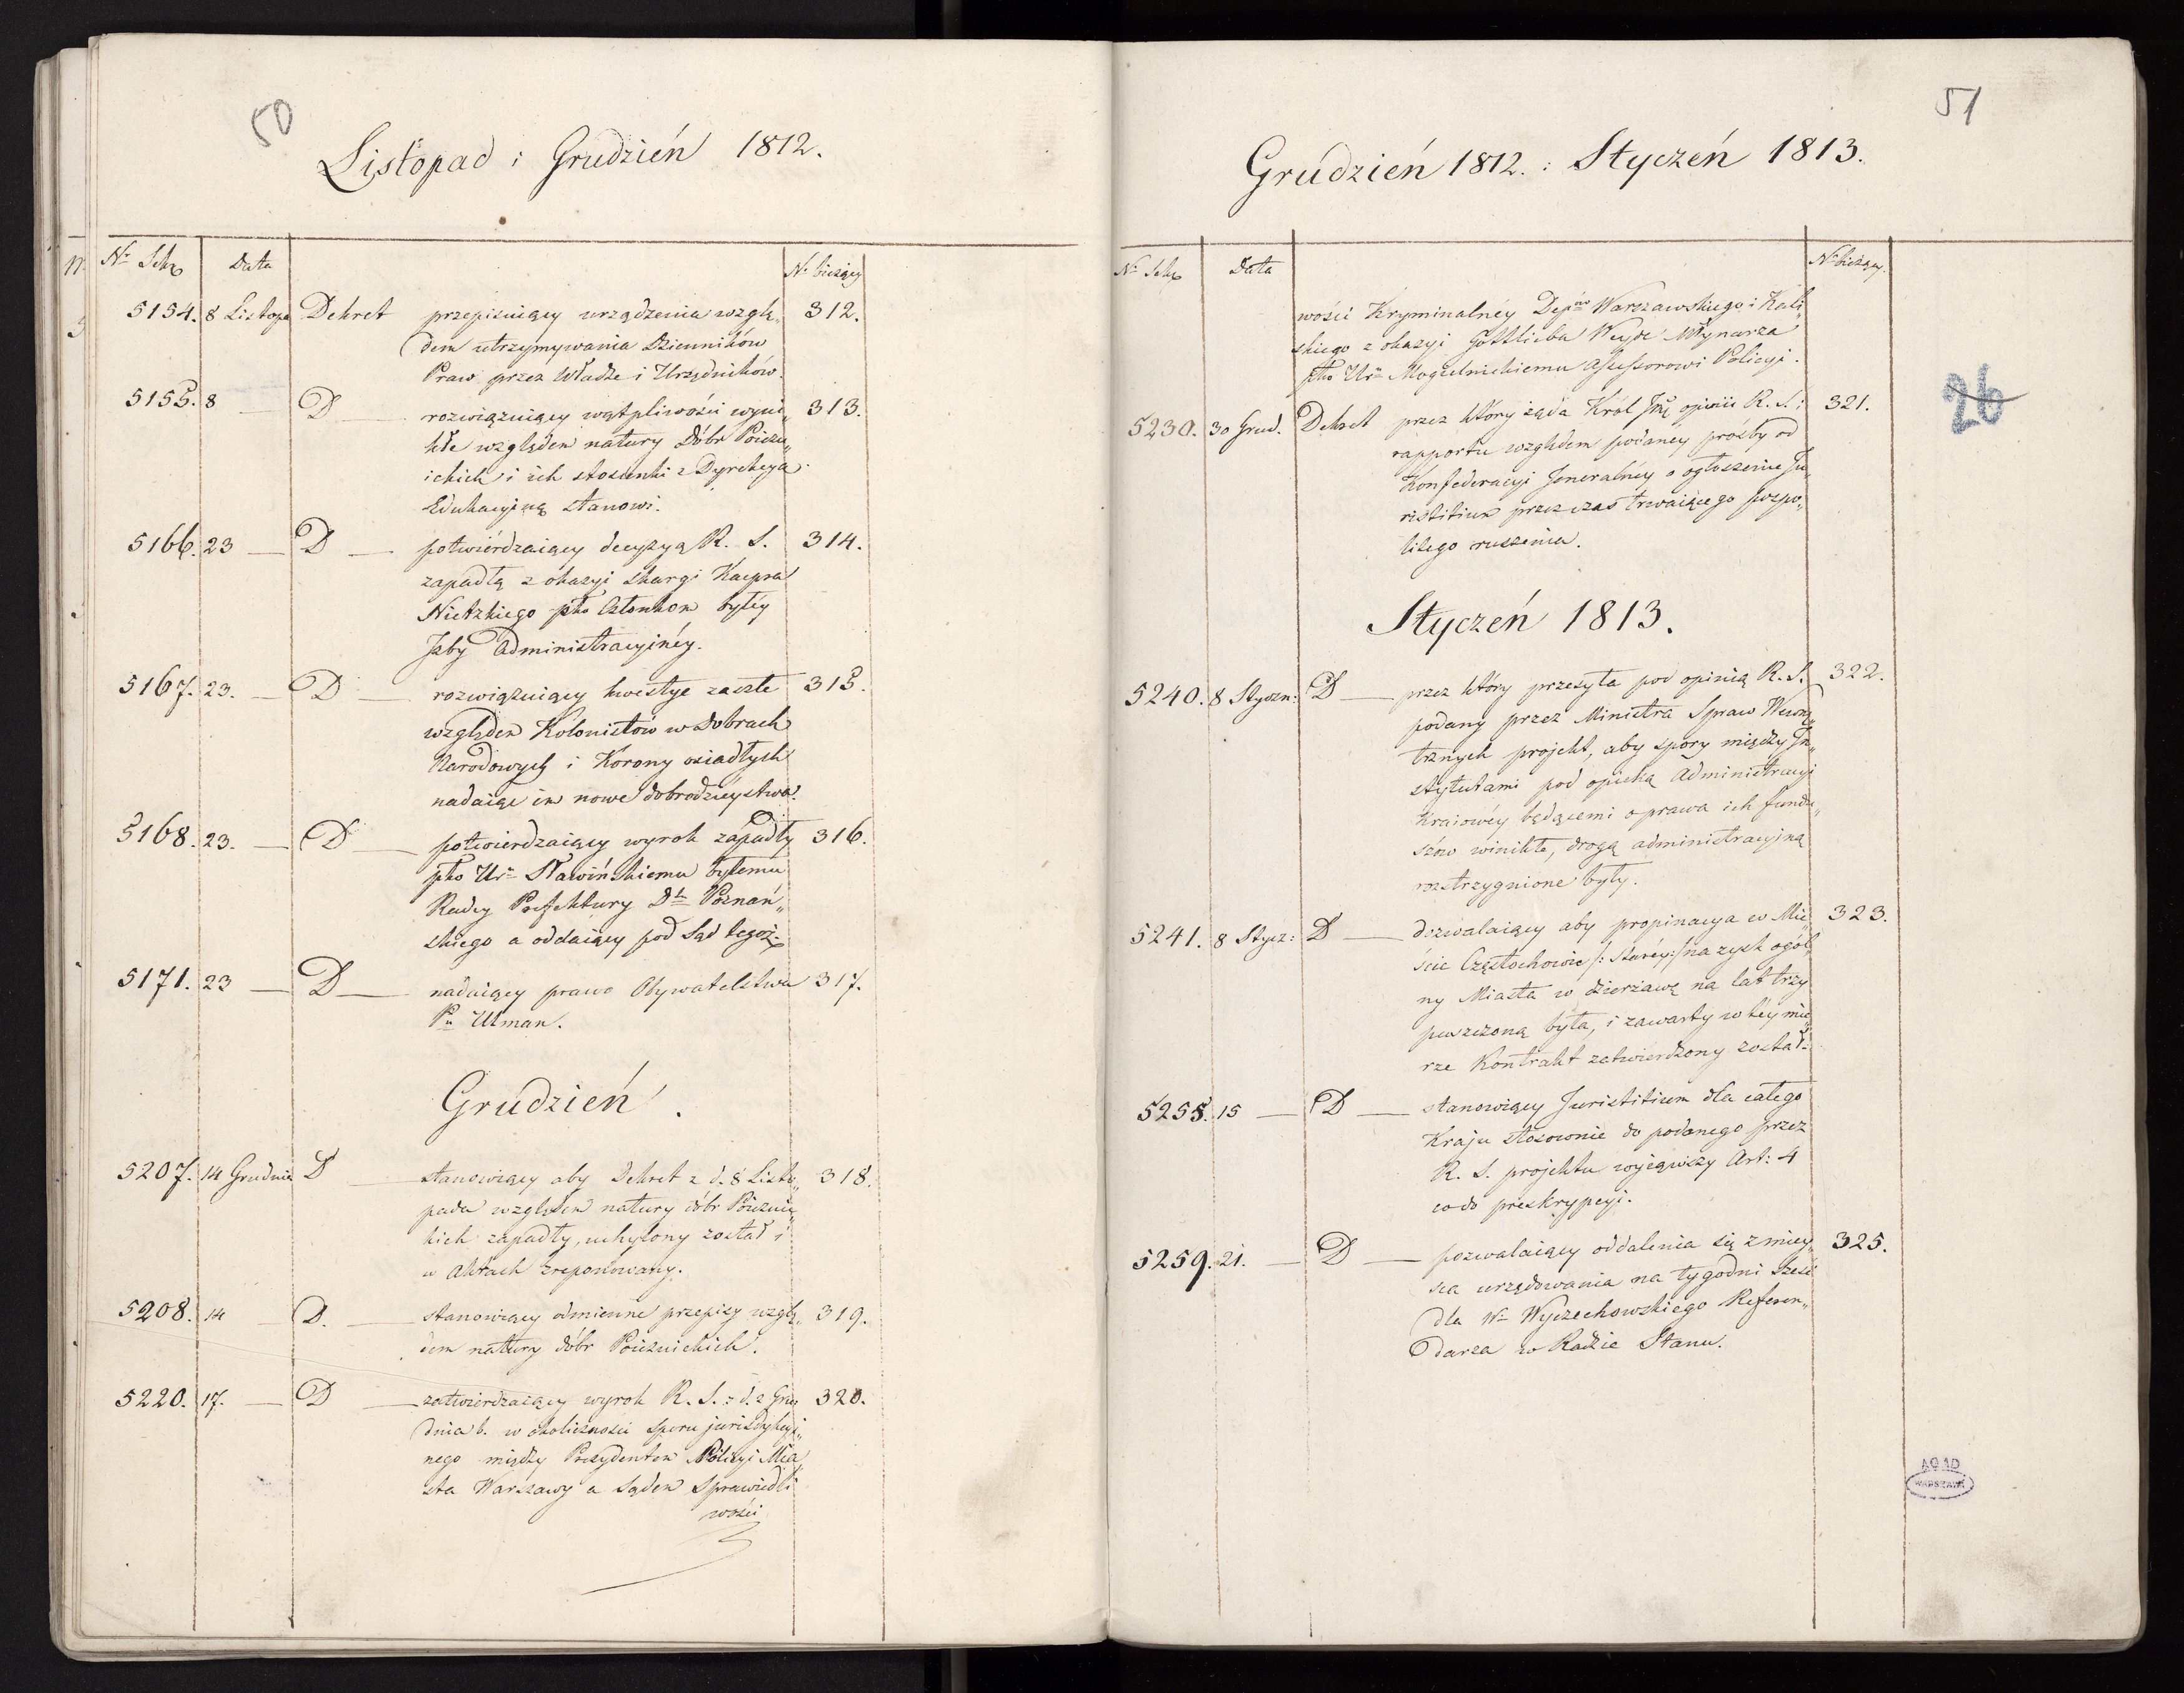 50
Listopad i Grudzień 1812.
Nr Sekr Data Nr bieżący
5154. 8 Listopa Dekret przepisuiący urządzenia wzglę„ 312.
dem utrzymywania Dzienników
Praw przez Władze i Urzędników.
5155. 8 — D — rozwiązuiący wątpliwości wyni„ 313.
kłe względem natury Dóbr Poiezu„
ickich i ich stosunki z Dyrekcyą
Edukacyiną stanowi.
5166. 23 — D — potwierdzaiący decyzyą R. S. 314.
zapadłą z okazyi skargi Kacpra
Nietzkiego pko Członkom byłéy
Jzby Administracyinéy.
5167. 23. — D — rozwiązuiący kwestye zaszłe 315.
względem Kolonistów w Dobrach
Narodowych i Korony osiadłych
nadaiąc im nowe dobrodzieystwa.
5168. 23. — D — potwierdzaiący wyrok zapadły 316.
pko Ur. Sławińskiemu byłemu
Radcy Prefektury Dtu Poznań„
skiego a oddaiący pod Sąd tegoż.
5171. 23 — D — nadaiący prawo Obywatelstwa 317.
Pu Ulman.
Grudzień.
5207. 14 Grudnia D — stanowiący aby Dekret z d. 8 Listo„ 318.
pada względem natury dóbr Poiezuic„
kich zapadły, uchylony został i
w Aktach zreponowany.
5208. 14 — D. — stanowiący odmienne przepisy wzglę„ 319.
dem natury dóbr Poiezuickich.
5220. 17. — D — zatwierdzaiący wyrok R. S. z d. 2 Gru„ 320.
dnia b. w okoliczności sporu jurisdykcyi„
nego między Prezydentem Policyi Mia„
sta Warszawy a Sądem Sprawiedli
wości
51
Grudzień 1812. i Styczeń 1813.
Nr Sekr Data Nr bieżący.
wości Kryminalnéy Depów Warszawskiego i Kali„
skiego z okazyi Gottlieba Weyde Młynarza
pko Ur. Mogielnickiemu Assessorowi Policyi.
5230. 30 Grud. Dekret przez który żąda Król Jmć opinii R. S. i 321.
rapportu względem podanéy prośby od
Konfederacyi Jeneralnéy o ogłoszenie Ju„
ristitium przez czas trwaiącego pospo„
litego ruszenia.
Styczeń 1813.
5240. 8 Styczn: D — przez który przesyła pod opinią R. S. 322.
podany przez Ministra Spraw Wewnę„
trznych projekt, aby spory między In„
stytutami pod opieką Administracyi
Kraiowéy będącemi o prawa ich fundu„
szów winikłe, drogą administracyiną
rozstrzygnione były.
5241. 8 Stycz: D — dozwalaiący aby propinacya w Mie„ 323.
ście Częstochowie /: Staréy:/ na zysk ogól„
ny Miasta w dzierżawę na lat trzy
puszczoną była, i zawarty w téy mie„
rze Kontrakt zatwierdzony został.
5255. 15 — D — stanowiący Juristitium dla całego
Kraju stosownie do podanego przez
R. S. projektu wyiąwszy Art: 4
co do preskrypcyi.
5259. 21. — D — pozwalaiący oddalenia się z miey„ 325.
sca urzędowania na tygodni sześć
dla W. Wyczechowskiego Referen„
darza w Radzie Stanu.
26
AGAD
WARSZAWA